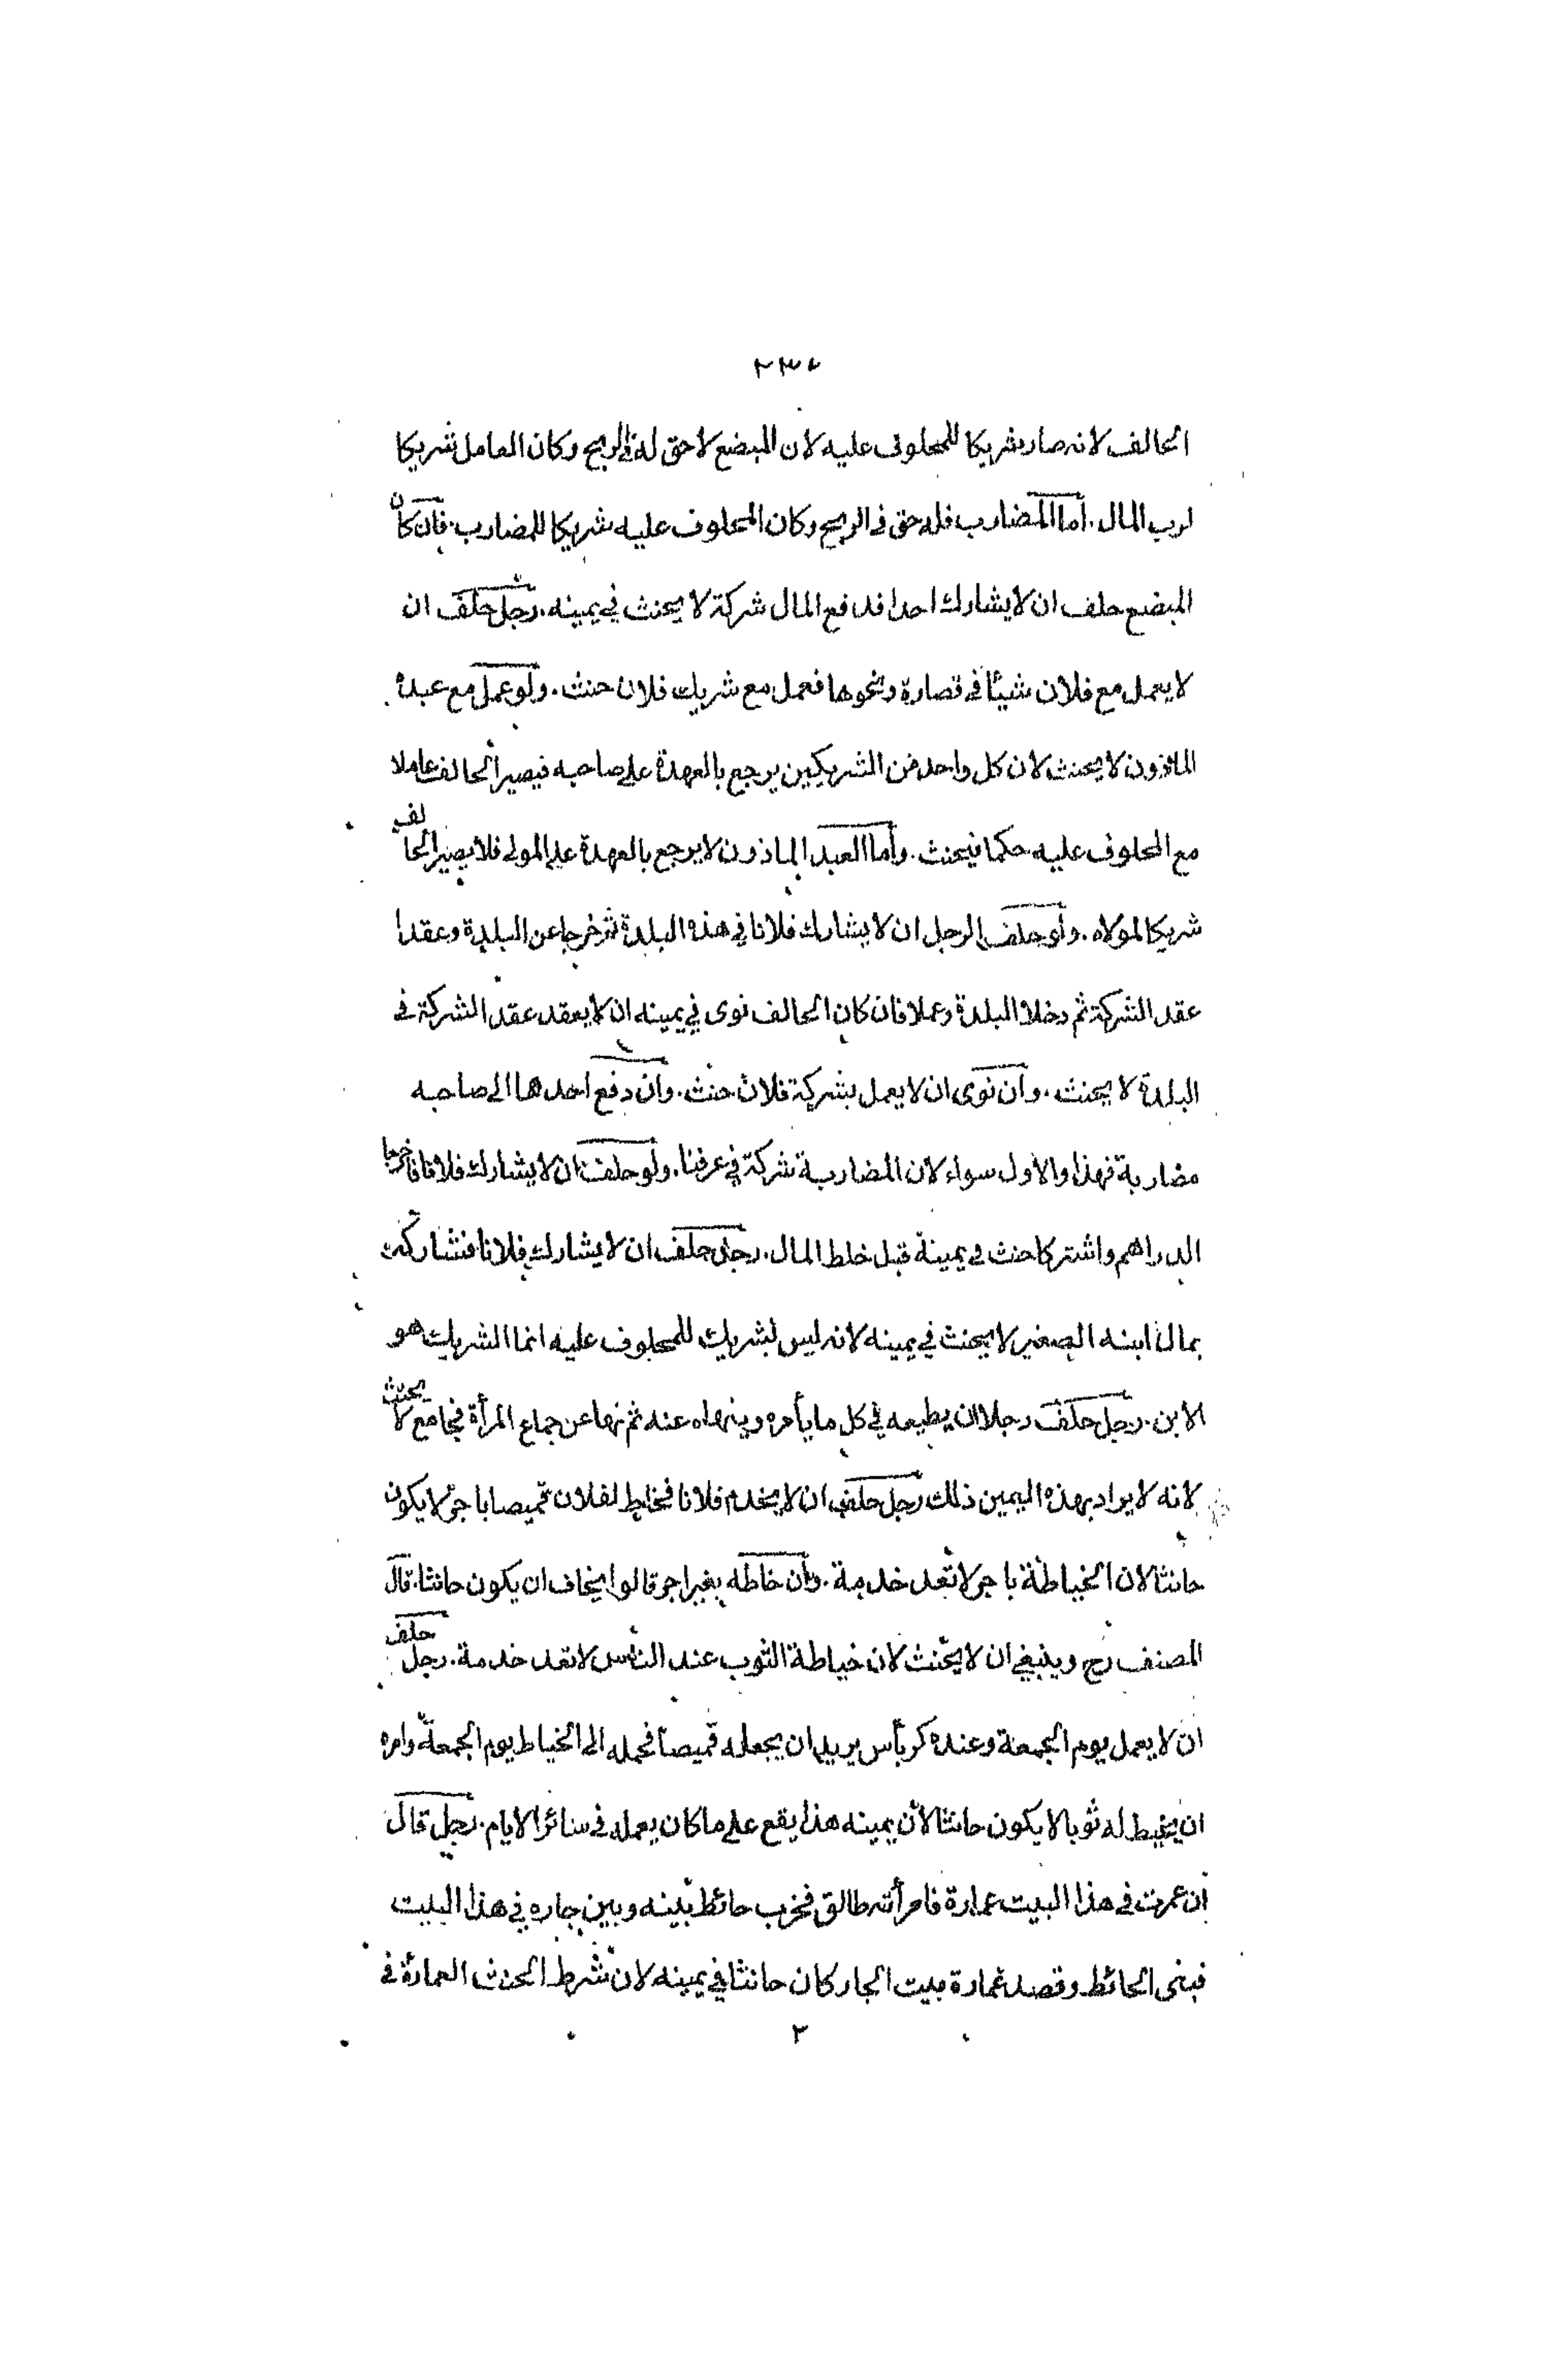 ٢٣٠
الحالف لانه صار شريكا للمحلوف عليه لان المبضع لا حق له فى الربح وكان العامل شريكا
لرب المال . أما المضارب فله حق فى الربح وكان المحلوف عليه شريكا للمضارب . فان كان
المبضع حلف ان لا يشارك احدا فدفع المال شركة لا يحنث في يمينه . رجل حلف ان
لا يعمل مع فلان شيئا فى قصارة ونحوها فعمل مع شريك فلان حنث . ولو عمل مع عبده
الماذون لا يحنث لان كل واحد من الشريكين يرجع بالعهدة على صاحبه فيصير الحالف عاملا
مع المحلوف عليه حكما فيحنث . وأما العبد الماذون لا يرجع بالعهدة على المولى فلا يصير الحالف
شريكا لمولاه . ولو حلف الرجل ان لا يشارك فلانا في هذه البلدة ثم خرجا عن البلدة وعقدا
عقد الشركة ثم دخلا البلدة وعملا فان كان الحالف نوى في يمينه ان لا يعقد عقد الشركة فى
البلدة لا يحنث . وان نوى ان لا يعمل بشركة فلان حنث . وان دفع احدهما الى صاحبه
مضاربة فهذا والاول سواء لان المضاربة شركة في عرفنا . ولو حلف ان لا يشارك فلانا فاخرجا
الدراهم واشتركا حنث في يمينه قبل خلط المال . رجل حلف ان لا يشارك فلانا فشاركه
بمال ابنه الصغير لا يحنث في يمينه لانه ليس بشريك للمحلوف عليه انما الشريك هو
الابن . رجل حلف رجلا ان يطيعه في كل ما يأمره وينهاه عنه ثم نهاه عن جماع المرأة فجامع لا يحنث
لانه لا يراد بهذه اليمين ذلك رجل حلف ان لا يخدم فلانا فخاط لفلان قميصا باجر لا يكون
حانثا لان الخياطة باجر لا تعد خدمة . وان خاطه بغير اجر قالوا يخاف ان يكون حانثا . قال
المصنف رح وينبغي ان لا يحنث لان خياطة الثوب عند الناس لا تعد خدمة . رجل حلف
ان لا يعمل يوم الجمعة وعنده كرباس يريد ان يجعله قميصا فحمله الى الخياط يوم الجمعة وامره
ان يخيط له ثوبا لا يكون حانثا لان يمينه هذا يقع على ما كان يعمله فى سائر الايام . رجل قال
ان عمرت فى هذا البيت عمارة فامرأته طالق فخرب حائط بينه وبين جاره في هذا البيت
فبنى الحائط وقصد عمارة بيت الجار كان حانثا في يمينه لان شرط الحنث العمارة فى
٢